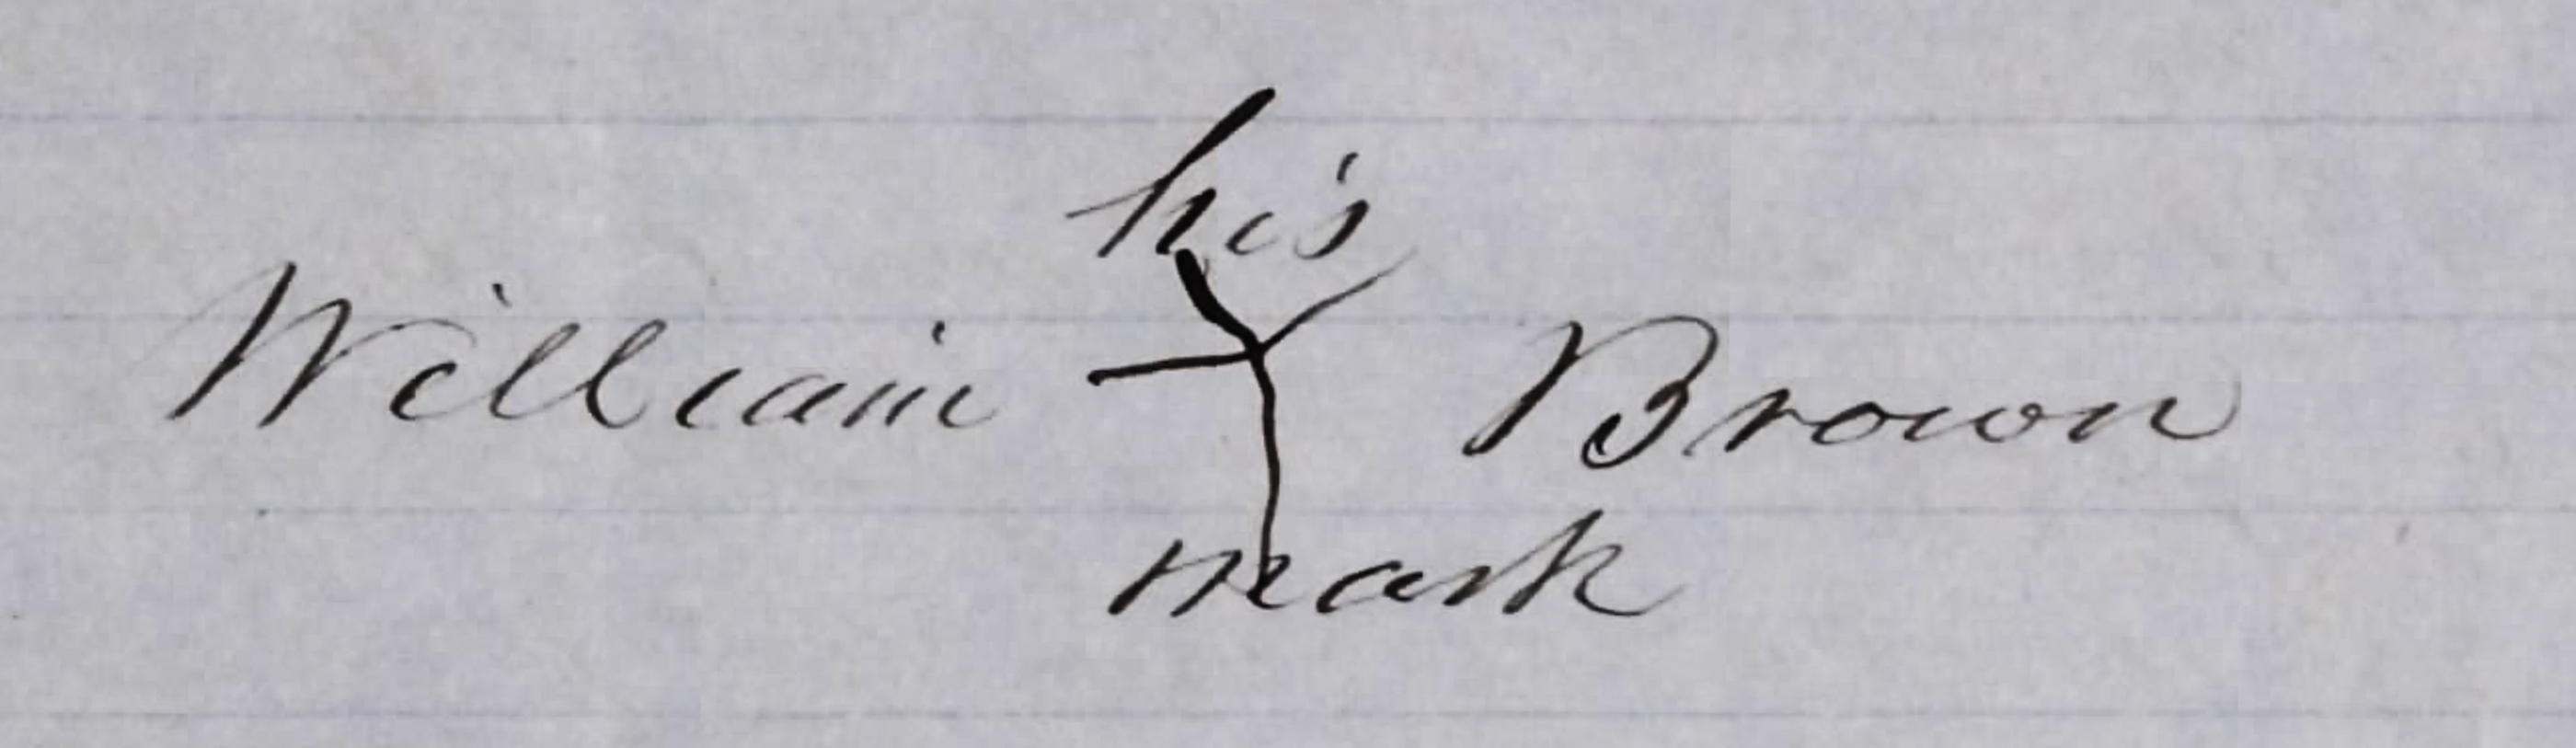 his
William Brown
mark